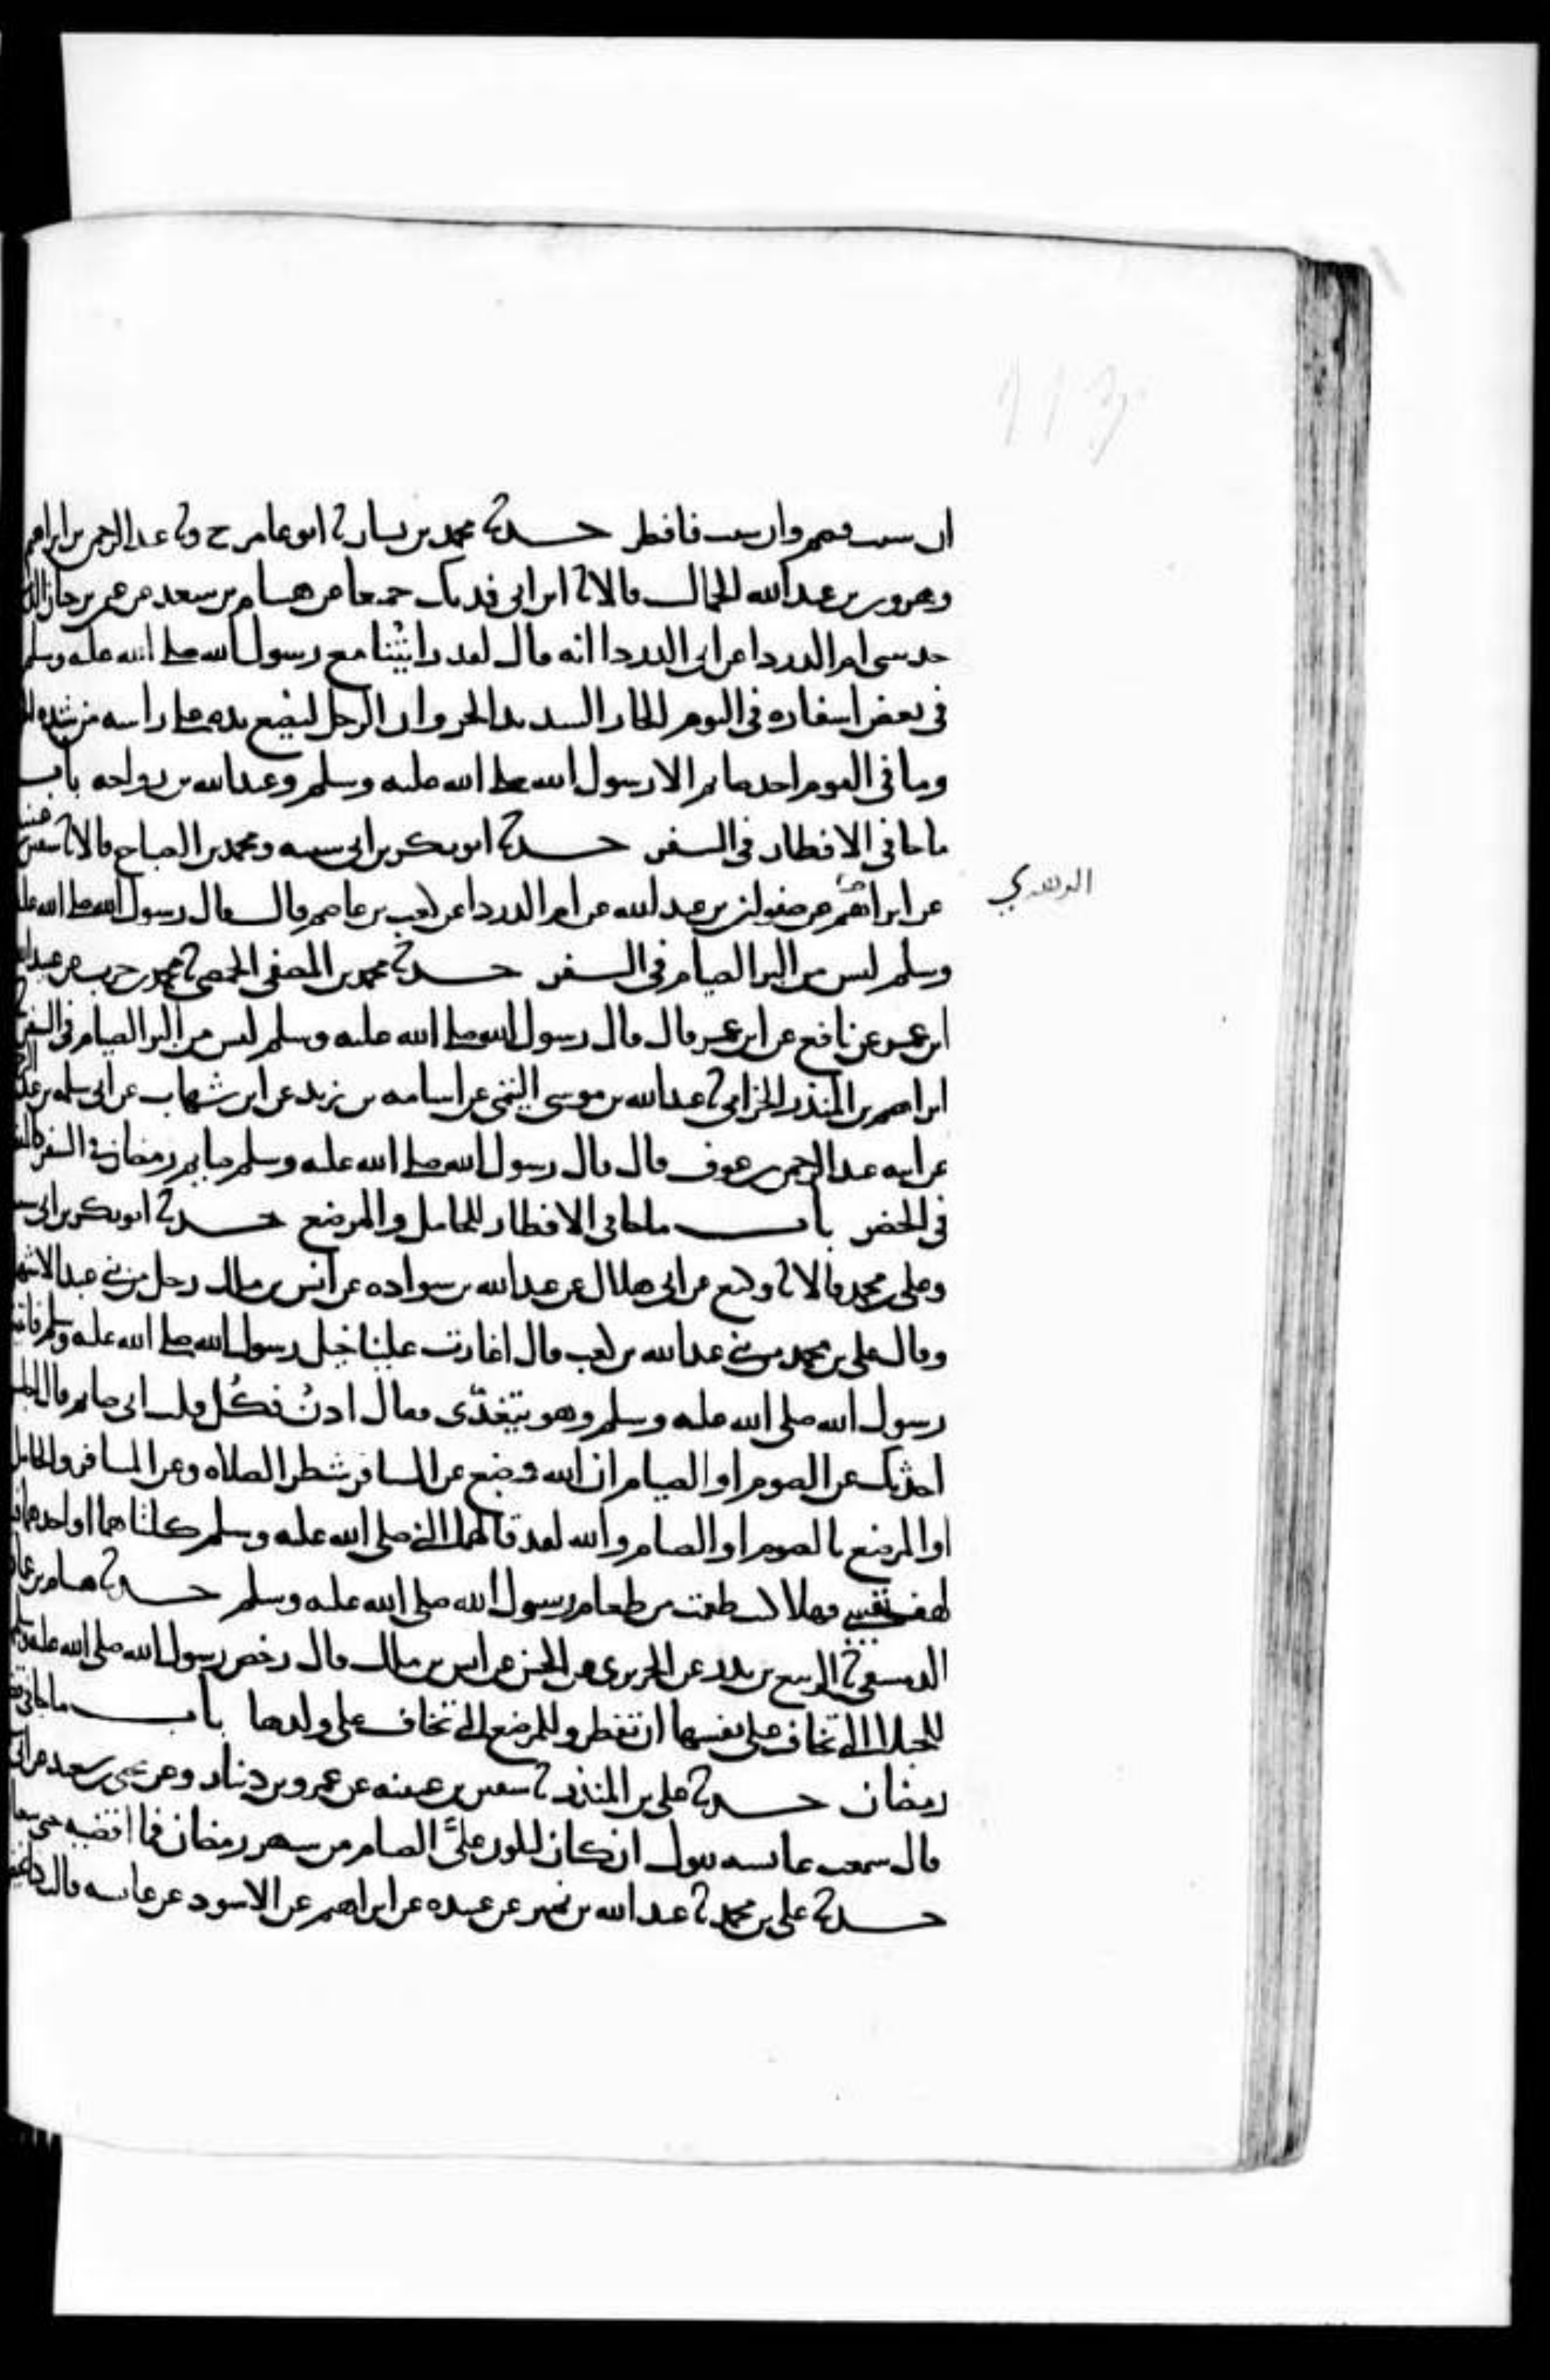 113
ان شئت فصم وان شئت فافطر حدثنا محمد بن بشار ثنا ابو عامر ح وثنا عبد الرحمن بن ابراهيم
وهرون بن عبد الله الحمال قالا ثنا ابن ابي فديك جميعا عن هشام بن سعد عن عمر بن حيان
حدثتني ام الدرداء عن ابي الدرداء انه قال لقد رايتنا مع رسول الله صلى الله عليه وسلم
في بعض اسفاره في اليوم الحار الشديد الحر وان الرجل ليضع يده على راسه من شده
وما في القوم احد صايم الا رسول الله صلى الله عليه وسلم وعبد الله بن رواحه باب
ما جا في الافطار في السفر حدثنا ابو بكر بن ابي شيبه ومحمد بن الصباح قالا ثنا سفين
الزهري
عن ابراهيم عن صفوان بن عبد الله عن ام الدرداء عن كعب بن عاصم قال قال رسول الله صلى الله عليه
وسلم ليس من البر الصيام في السفر حدثنا محمد بن المصفى الحمصي ثنا محمد بن حرب عن عبيد الله
ابن عمر عن نافع عن ابن عمر قال قال رسول الله صلى الله عليه وسلم ليس من البر الصيام في السفر
ابراهيم بن المنذر الحزامي ثنا عبد الله بن موسى التيمي عن اسامه بن زيد عن ابن شهاب عن ابي سلمه بن عبد
عن ابيه عبد الرحمن بن عوف قال قال رسول الله صلى الله عليه وسلم صايم رمضان في السفر كالمفطر
في الحضر باب ما جا في الافطار للحامل والمرضع حدثنا ابو بكر بن ابي شيبه
وعلي بن محمد قالا ثنا وكيع عن ابي هلال عن عبد الله بن سواده عن انس بن مالك رجل من بني عبد الاشهل
وقال علي بن محمد من بني عبد الله بن كعب قال اغارت علينا خيل رسول الله صلى الله عليه وسلم فاتيت
رسول الله صلى الله عليه وسلم وهو يتغدّى فقال ادنُ فكُل قلت اني صايم قال اجلس
احدثك عن الصوم او الصيام ان الله وضع عن المسافر شطر الصلاه وعن المسافر والحامل
او المرضع الصوم او الصيام والله لقد قالهما النبي صلى الله عليه وسلم كلتاهما او احدهما
لهف نفسي فهلا كنت طعمت من طعام رسول الله صلى الله عليه وسلم حدثنا هشام بن عمار
الدمشقي ثنا الربيع بن بدر عن الجريري عن الحسن عن انس بن مالك قال رخص رسول الله صلى الله عليه وسلم
للحبلى التي تخاف على نفسها ان تفطر وللمرضع التي تخاف على ولدها باب ما جا في قضا
رمضان حدثنا علي بن المنذر ثنا سفين بن عيينه عن عمرو بن دينار وعن يحيى بن سعيد عن ابي
قال سمعت عايشه تقول ان كان ليكون عليَّ الصيام من شهر رمضان فما اقضيه حتى
حدثنا علي بن محمد ثنا عبد الله بن نمير عن عبيده عن ابراهيم عن الاسود عن عايشه قالت كنا